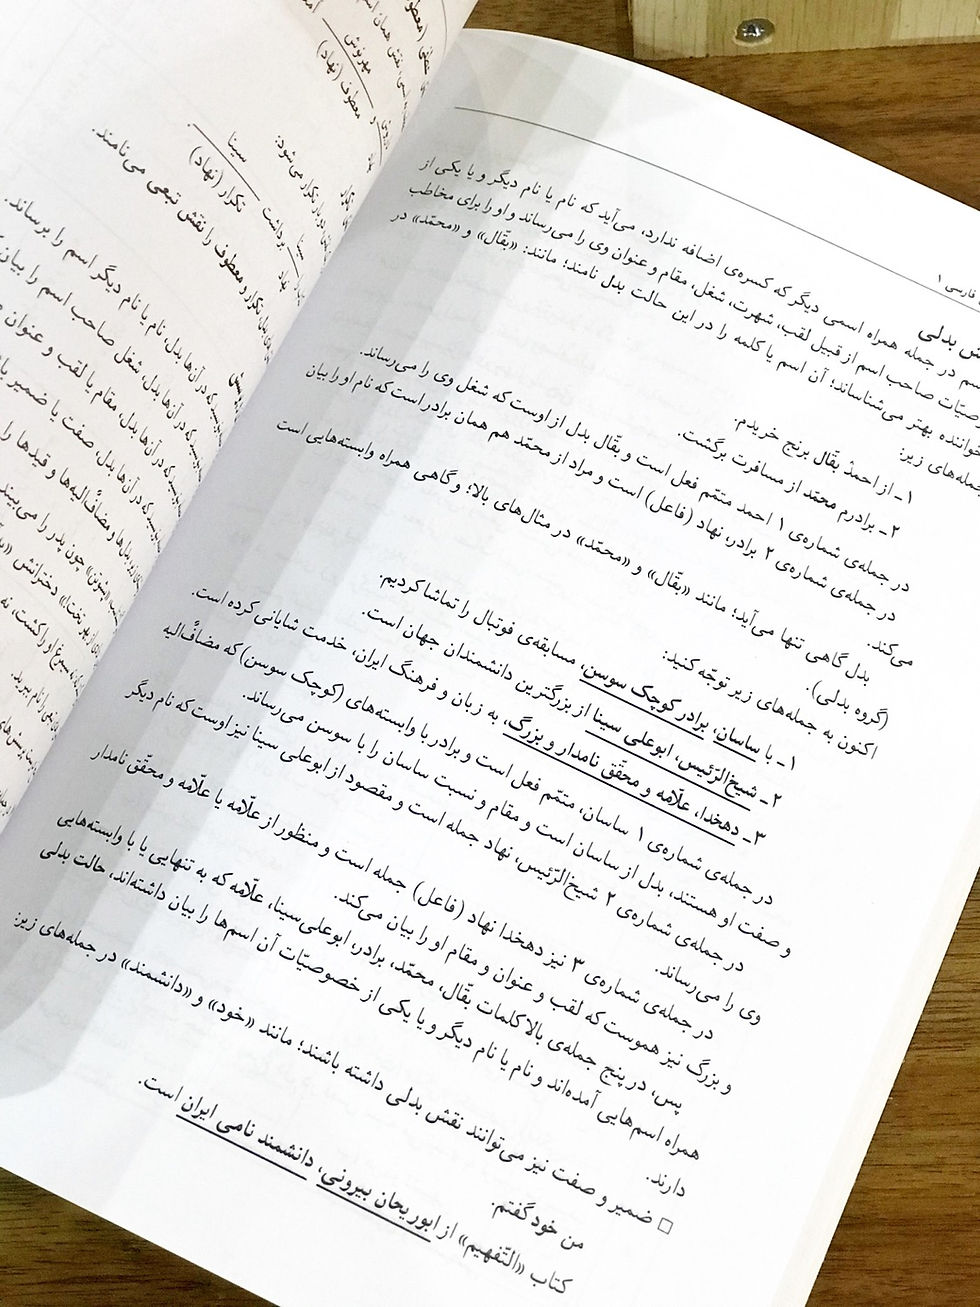 فارسی ۱
بدلی
در جمله همراه اسمی دیگر که کسره‌ی اضافه ندارد، می‌آید که نام یا نام دیگر و یا یکی از
صاحب اسم از قبیل لقب، شهرت، شغل، مقام و عنوان وی را می‌رساند و او را برای مخاطب
بهتر می‌شناساند؛ آن اسم یا کلمه را در این حالت بدل نامند؛ مانند: «بقّال» و «محمّد» در
جمله‌های زیر:
۱ـ از احمدْ بقّال برنج خریدم.
۲ـ برادرم محمّد از مسافرت برگشت.
در جمله‌ی شماره‌ی ۱ احمد متمّم فعل است و بقّال بدل از اوست که شغل وی را می‌رساند.
در جمله‌ی شماره‌ی ۲ برادر، نهاد (فاعل) است و مراد از محمّد هم همان برادر است که نام او را بیان
می‌کند.
بدل گاهی تنها می‌آید؛ مانند «بقّال» و «محمّد» در مثال‌های بالا؛ و گاهی همراه وابسته‌هایی است
(گروه بدلی).
اکنون به جمله‌های زیر توجّه کنید:
۱ـ با ساسان، برادر کوچک سوسن، مسابقه‌ی فوتبال را تماشا کردیم.
۲ـ شیخ‌الرّئیس، ابوعلی سینا از بزرگترین دانشمندان جهان است.
۳ـ دهخدا، علّامه و محقّق نامدار و بزرگ، به زبان و فرهنگ ایران، خدمت شایانی کرده است.
در جمله‌ی شماره‌ی ۱ ساسان، متمّم فعل است و برادر با وابسته‌های (کوچک سوسن) که مضافٌ‌الیه
و صفت او هستند، بدل از ساسان است و مقام و نسبت ساسان را با سوسن می‌رساند.
در جمله‌ی شماره‌ی ۲ شیخ‌الرّئیس، نهاد جمله است و مقصود از ابوعلی سینا نیز اوست که نام دیگر
وی را می‌رساند.
در جمله‌ی شماره‌ی ۳ نیز دهخدا نهاد (فاعل) جمله است و منظور از علّامه یا علّامه و محقّق نامدار
و بزرگ نیز هموست که لقب و عنوان و مقام او را بیان می‌کند.
پس، در پنج جمله‌ی بالا کلمات بقّال، محمّد، برادر، ابوعلی‌سینا، علّامه که به تنهایی یا با وابسته‌هایی
همراه اسم‌هایی آمده‌اند و نام یا نام دیگر و یا یکی از خصوصیّات آن اسم‌ها را بیان داشته‌اند، حالت بدلی
دارند.
□ ضمیر و صفت نیز می‌توانند نقش بدلی داشته باشند؛ مانند «خود» و «دانشمند» در جمله‌های زیر:
من خود گفتم.
کتاب «التّفهیم» از ابوریحان بیرونی، دانشمند نامی ایران است.
مهرنوش
معطوف (نهاد)
تکرار می‌شود:
سینا برداشت سینا
تکرار (نهاد)
تکرار و معطوف را نقش تبعی می‌نامند.
که در آن‌ها بدل، نام یا نام دیگر اسم را برساند.
که در آن‌ها بدل، شغل صاحب اسم را بیان
که در آن‌ها بدل، مقام یا لقب و عنوان
که در آن‌ها بدل، صفت یا ضمیر